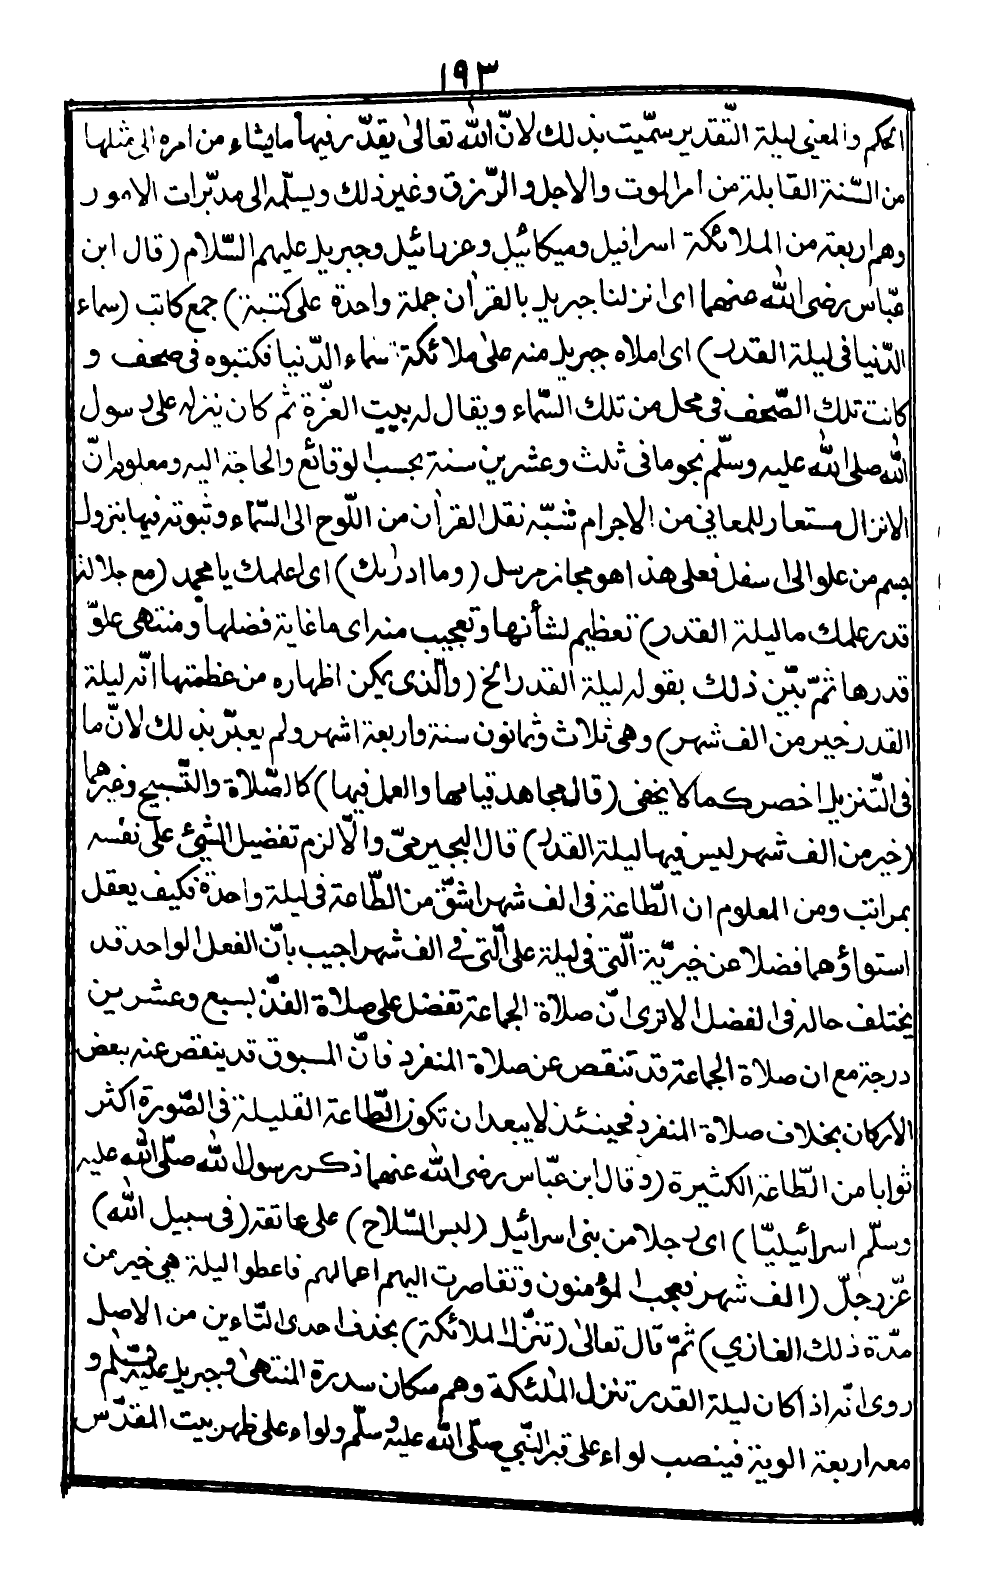 ١٩٣
الحكم والمعنى ليلة التّقدير سمّيت بذلك لانّ اللّٰه تعالىٰ يقدّر فيها ما يشاء من امره الى مثلها
من السّنة القابلة من امر الموت والاجل والرّزق وغير ذلك ويسلّمه الى مدبّرات الامور
وهم اربعة من الملائكة اسرافيل وميكائيل وعزرائيل وجبريل عليهم السّلام (قال ابن
عبّاس رضى اللّٰه عنهما اى انزلنا جبريل بالقراٰن جملة واحدة على كتبة) جمع كاتب (سماء
الدّنيا فى ليلة القدر) اى املاه جبريل منه على ملائكة سماء الدّنيا فكتبوه فى صحف و
كانت تلك الصّحف فى محل من تلك السّماء ويقال له بيت العزّة ثم كان ينزله على رسول
اللّٰه صلى اللّٰه عليه وسلّم نجوما فى ثلث وعشرين سنة بحسب الوقائع والحاجة اليه ومعلوم انّ
الانزال مستعار للمعانى من الاجرام شبّه نقل القراٰن من اللّوح الى السّماء وثبوته فيها بنزول
جسم من علو الى سفل فعلى هذا هو مجاز مرسل (وما ادرٰىك) اى اعلمك يا محمد (مع جلالة
قدر علمك ما ليلة القدر) تعظيم لشأنها وتعجيب منه اى ما غاية فضلها ومنتهى علوّ
قدرها ثمّ بيّن ذلك بقوله ليلة القدر الخ (والّذى يمكن اظهاره من عظمتها انّه ليلة
القدر خير من الف شهر) وهى ثلاث وثمانون سنة واربعة اشهر ولم يعبّر بذلك لانّ ما
فى التّنزيل اخصر كما لا يخفى (قال مجاهد قيامها والعمل فيها) كالصّلاة والتّسبيح وغيرهما
(خير من الف شهر ليس فيها ليلة القدر) قال البجيرمىّ والّا لزم تفضيل الشئ على نفسه
بمراتب ومن المعلوم ان الطّاعة فى الف شهر اشقّ من الطّاعة فى ليلة واحدة فكيف يعقل
استواؤهما فضلا عن خيريّة الّتى فى ليلة على الّتى فى الف شهر اجيب بأنّ الفعل الواحد قد
يختلف حاله فى الفضل الا ترى انّ صلاة الجماعة تفضل على صلاة الفذّ بسبع وعشرين
درجة مع ان صلاة الجماعة قد تنقص عن صلاة المنفرد فانّ المسبوق قد ينقص عنه بعض
الاركان بخلاف صلاة المنفرد فحينئذ لا يبعد ان تكون الطّاعة القليلة فى الصّورة اكثر
ثوابا من الطّاعة الكثيرة (وقال ابن عبّاس رضى اللّٰه عنهما ذكر رسول اللّٰه صلّى اللّٰه عليه
وسلّم اسرائيليّا) اى رجلا من بنى اسرائيل (لبس السّلاح) على عاتقه (فى سبيل اللّٰه)
عزّ وجلّ (الف شهر فعجب المؤمنون وتقاصرت اليهم اعمالهم فاعطوا ليلة هى خير من
مدّة ذلك الغازي) ثمّ قال تعالىٰ (تنزّل الملائكة) بحذف احدى التّاءين من الاصل
روى انّه اذا كان ليلة القدر تنزل الملٰئكة وهم سكان سدرة المنتهىٰ وجبريل عليه السّلم و
معه اربعة الوية فينصب لواء على قبر النّبي صلّى اللّٰه عليه وسلّم ولواء على ظهر بيت المقدّس